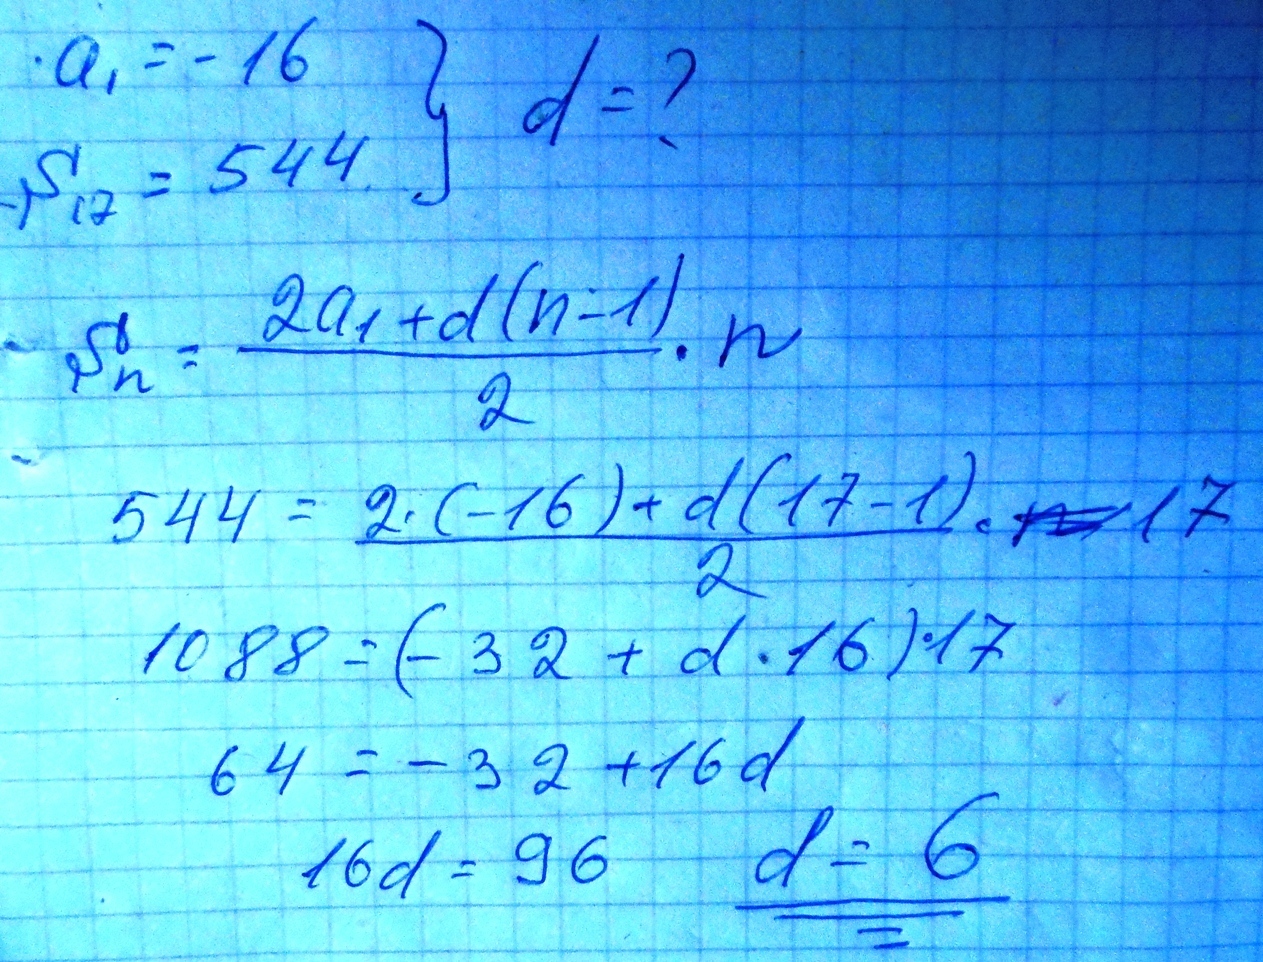 a₁ = -16 } d = ?
S₁₇ = 544
Sₙ = (2a₁ + d(n-1))/2 · n
544 = (2·(-16) + d(17-1))/2 · 17
1088 = (-32 + d·16)·17
64 = -32 + 16d
16d = 96 d = 6